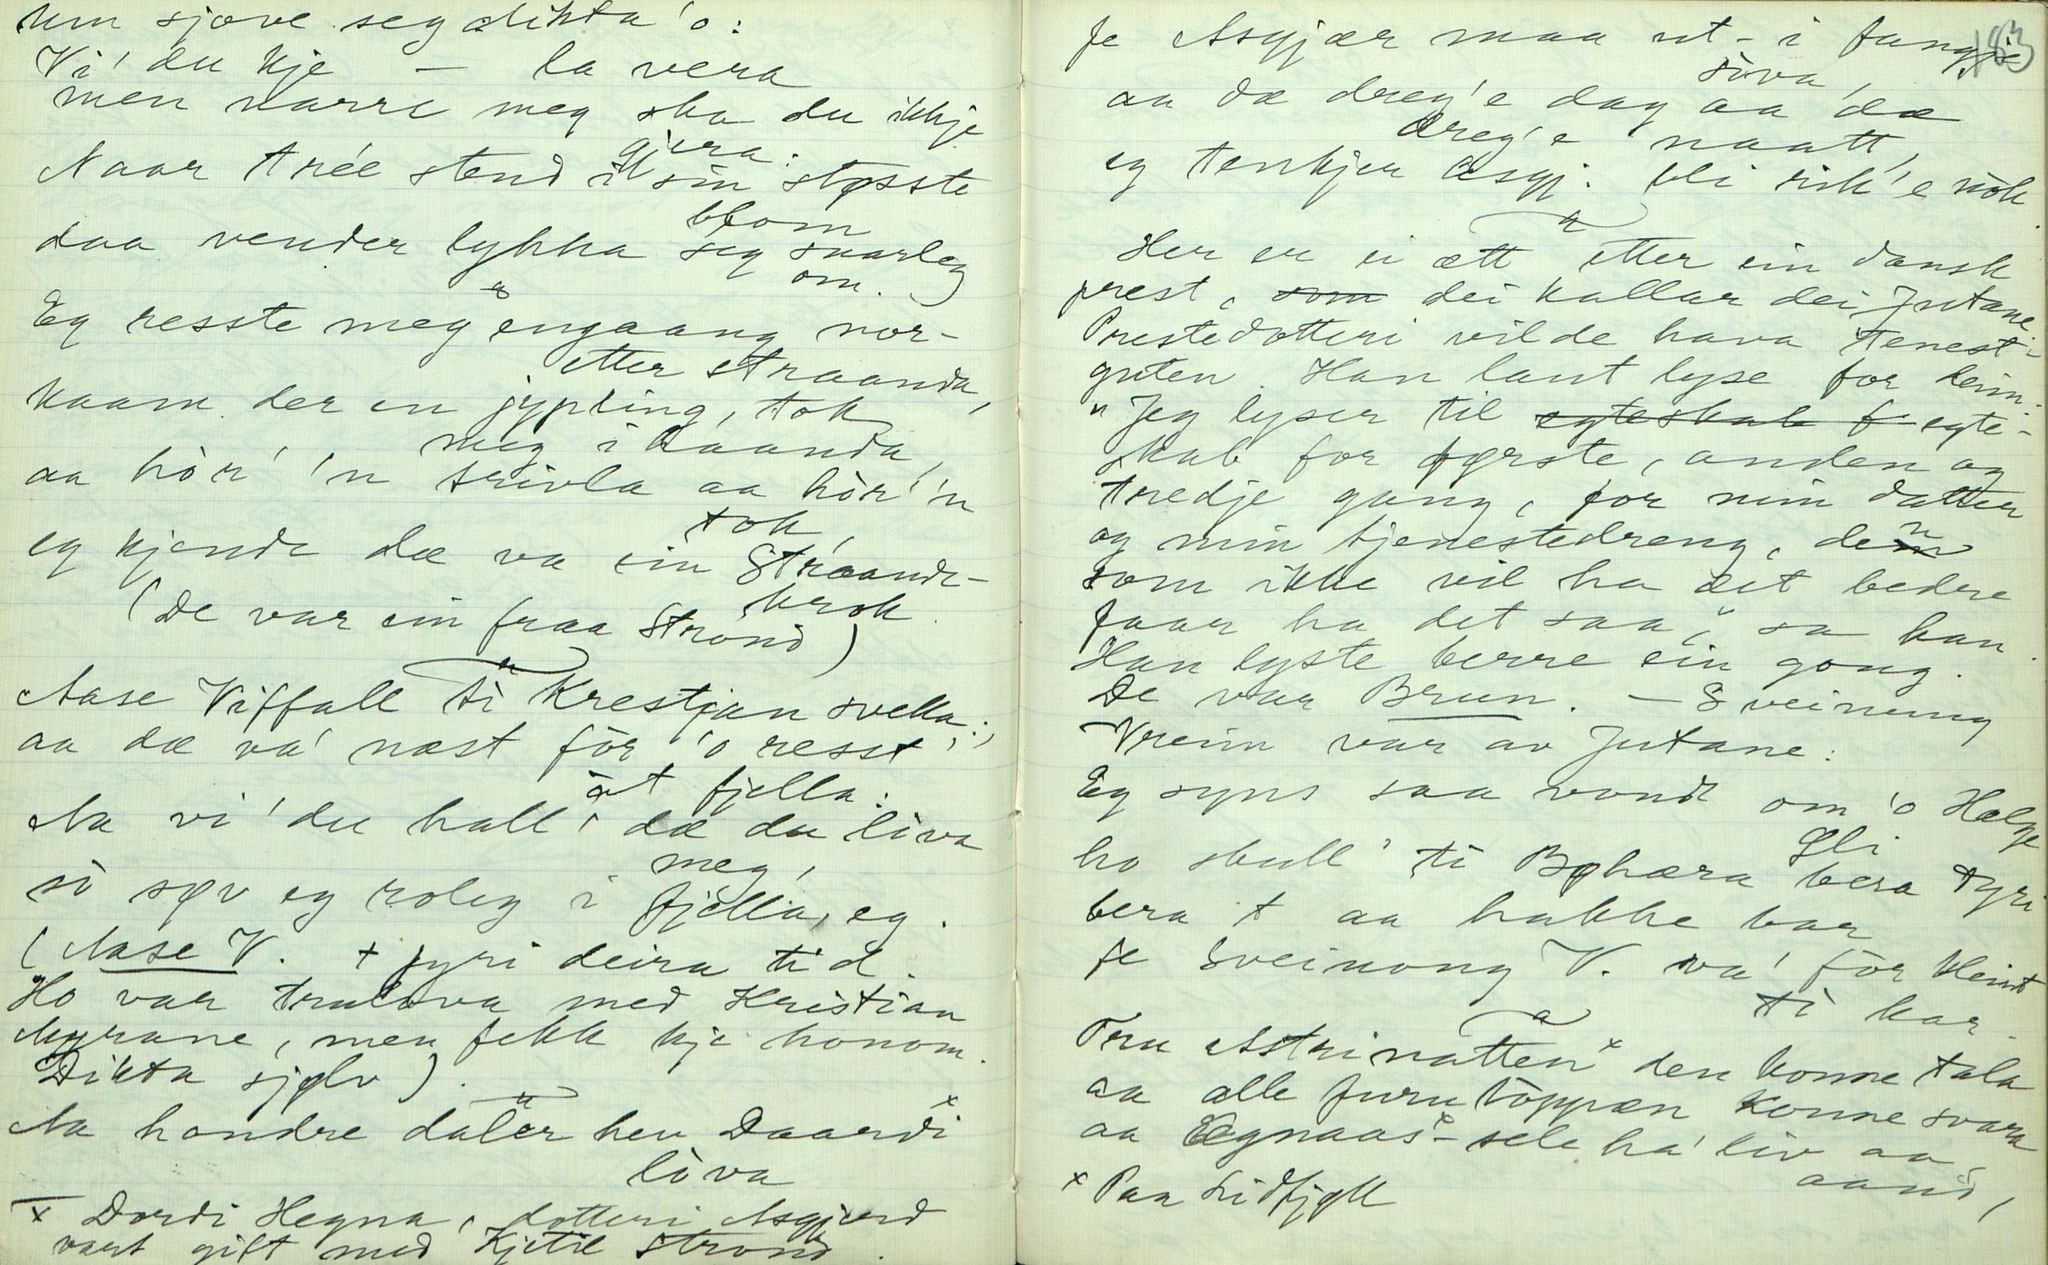 um sjøve seg dikta 'o:
Vi' du kje – la vera
men narre meg ska du ikkje
gjera.
Naar tréé stend i sin støsste
blom
daa vender lykka seg snarleg
om.
Eg resste meg engaang nor-
etter straanda,
kaam der en jypling, tok
meg i haanda,
aa hòr' 'n trivla aa hòr' 'n
tok,
eg kjende dæ va ein Straande-
krok.
(De var ein fraa Strònd)
Aase Viffall ti Krestjan svella;
aa dæ va' næst fòr 'o resst'
åt fjella.
Aa vi' du hall' dæ du lòva
meg,
sò søv eg roleg i fjella, eg.
(Aase V. + fyri deira tid.
Ho var trulova med Kristian
Myrane, men fekk kje honom.
Dikta sjølv).
Aa hondre dalar hev Daardi x
lòva
x Dordi Hegna, dotteri Asgjerd
vart gift med Kjetil Strond.
183
fe Asgjær maa ut i fang
sòva
aa dæ dreg'e dag aa dæ
dreg'e naatt,
eg tenkjer Asgj. bli rik'e nòk.
Her er ei ætt etter ein dansk
prest, som dei kallar dei Jutane.
Prestedotteri vilde hava tenest-
guten. Han laut lyse for deim.
"Jeg lyser til egteskab f egte-
skab for første, anden og
tredje gang, for min datter
og min tjenestedreng, den
som ikke vil ha det bedre
faar ha det saa," sa han.
Han lyste berre ein gong.
De var Brun. – Sveinung
Vreim var av Jutane:
Eg syns saa vondt om 'o Hælge
Lli
ho skull' ti Bøhæra bera tyri
bera t aa hakke bar
fe Sveinong V. va' fòr kleint
ti kar.
Tru Astrinatten x den konne tala
aa alle furutòppæn konne svara
aa Øgnaas x-sele ha' liv aa
aand,
x Paa Lidfjøll